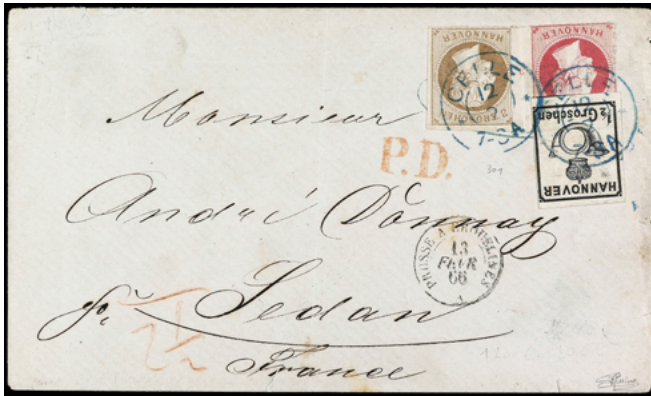 HANNOVER
HANNOVER
CELLE
12
2
7-8A
CELLE
12
7-8A
½ Groschen
HANNOVER
Monsieur
P.D.
301
André Donnay
PRUSSE A ERQUELINES
13
FEVR
66
Sedan
France